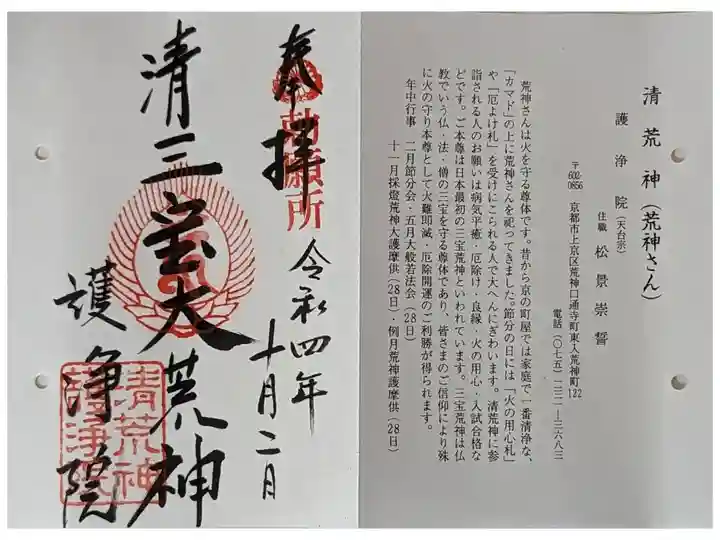 清荒神（荒神さん）
護浄院（天台宗）
住職 松景崇誓
〒602-0856 京都市上京区荒神口通寺町東入荒神町122
電話（〇七五）二三一―三六八三
荒神さんは火を守る尊体です。昔から京の町屋では家庭で一番清浄な、
「カマド」の上に荒神さんを祀ってきました。節分の日には「火の用心札」
や「厄よけ札」を受けにこられる人で大へんにぎわいます。清荒神に参
詣される人のお願いは病気平癒・厄除け・良縁・火の用心・入試合格な
どです。ご本尊は日本最初の三宝荒神といわれています。三宝荒神は仏
教でいう仏・法・僧の三宝を守る尊体であり、皆さまのご信仰により殊
に火の守り本尊として火難即滅・厄除開運のご利勝が得られます。
年中行事 二月節分会・五月大般若法会（28日）
十一月採燈荒神大護摩供（28日）・例月荒神護摩供（28日）
奉拝
勅願所
令和四年
十月二日
清三宝大荒神
護浄院
清荒神
護浄院